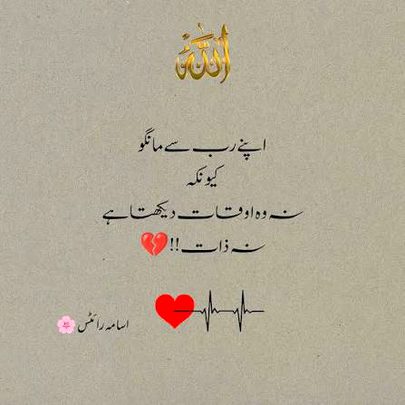 اللہ
اپنے رب سے مانگو
کیونکہ
نہ وہ اوقات دیکھتا ہے
نہ ذات!!💔
اسامہ رائٹس🌸